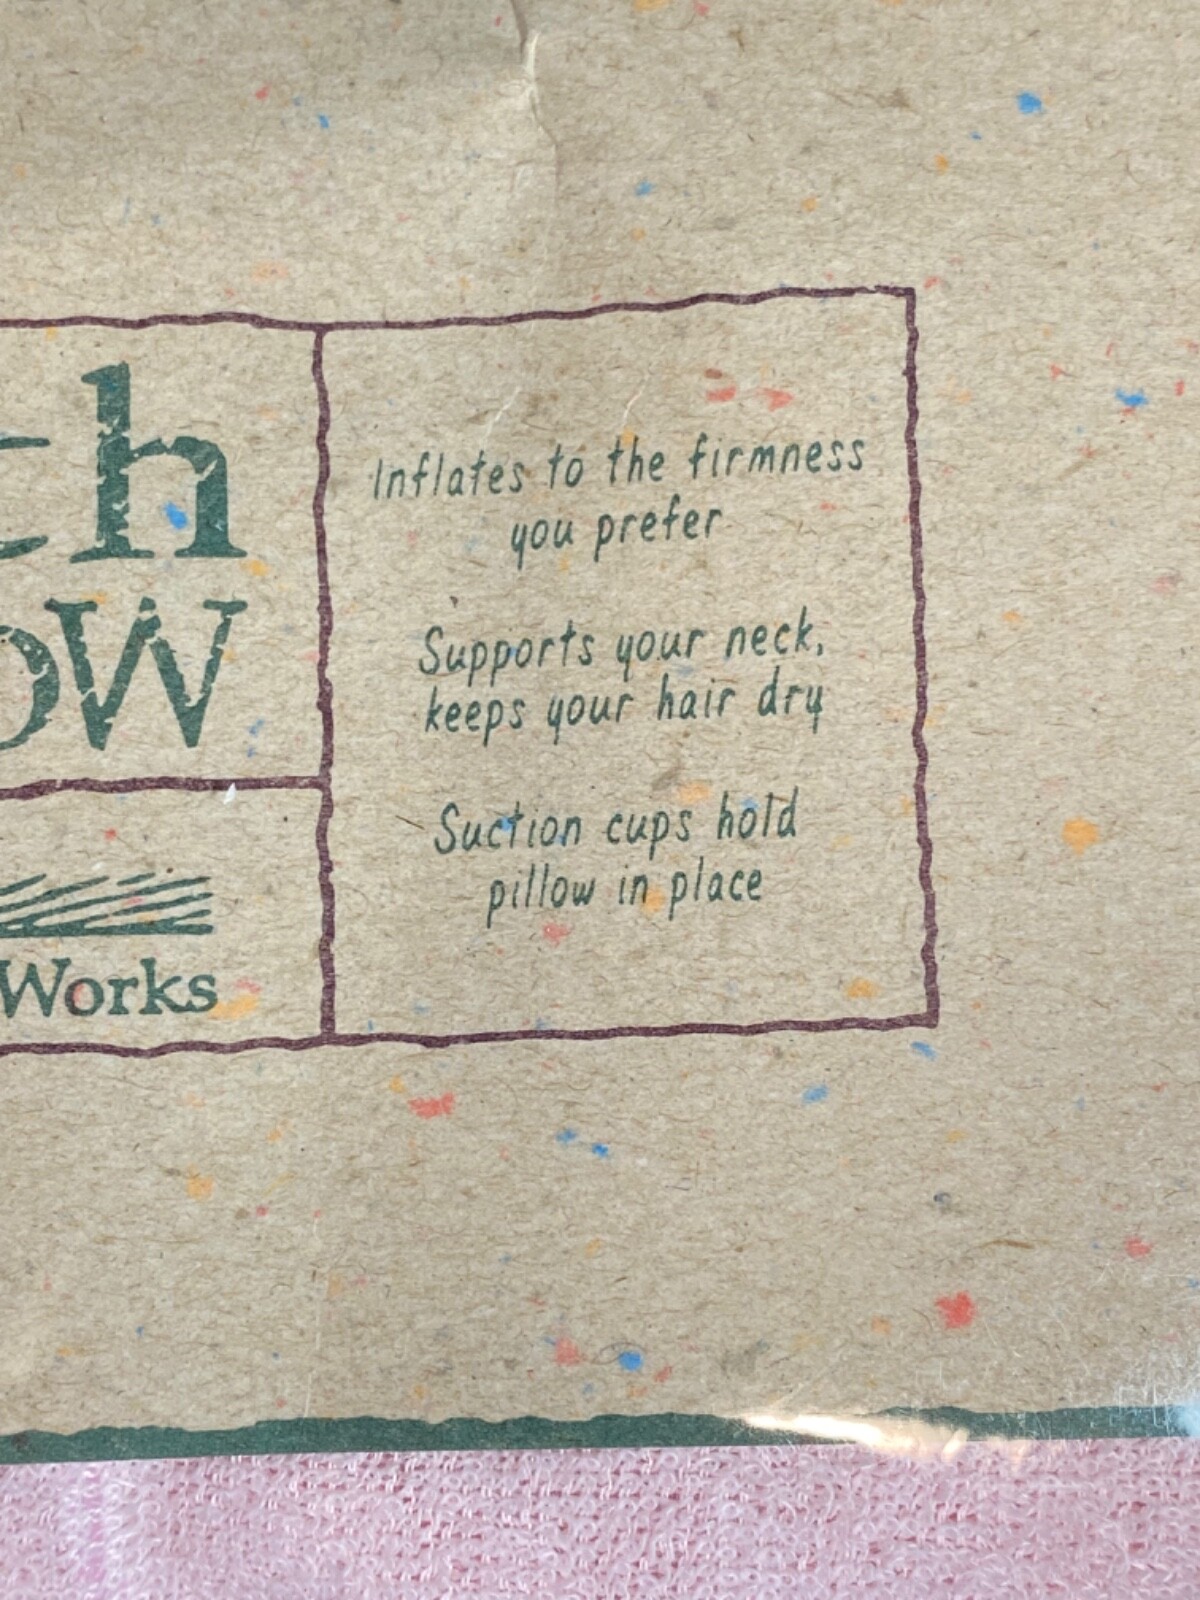 h
ow
Works
Inflates to the firmness
you prefer
Supports your neck,
keeps your hair dry
Suction cups hold
pillow in place